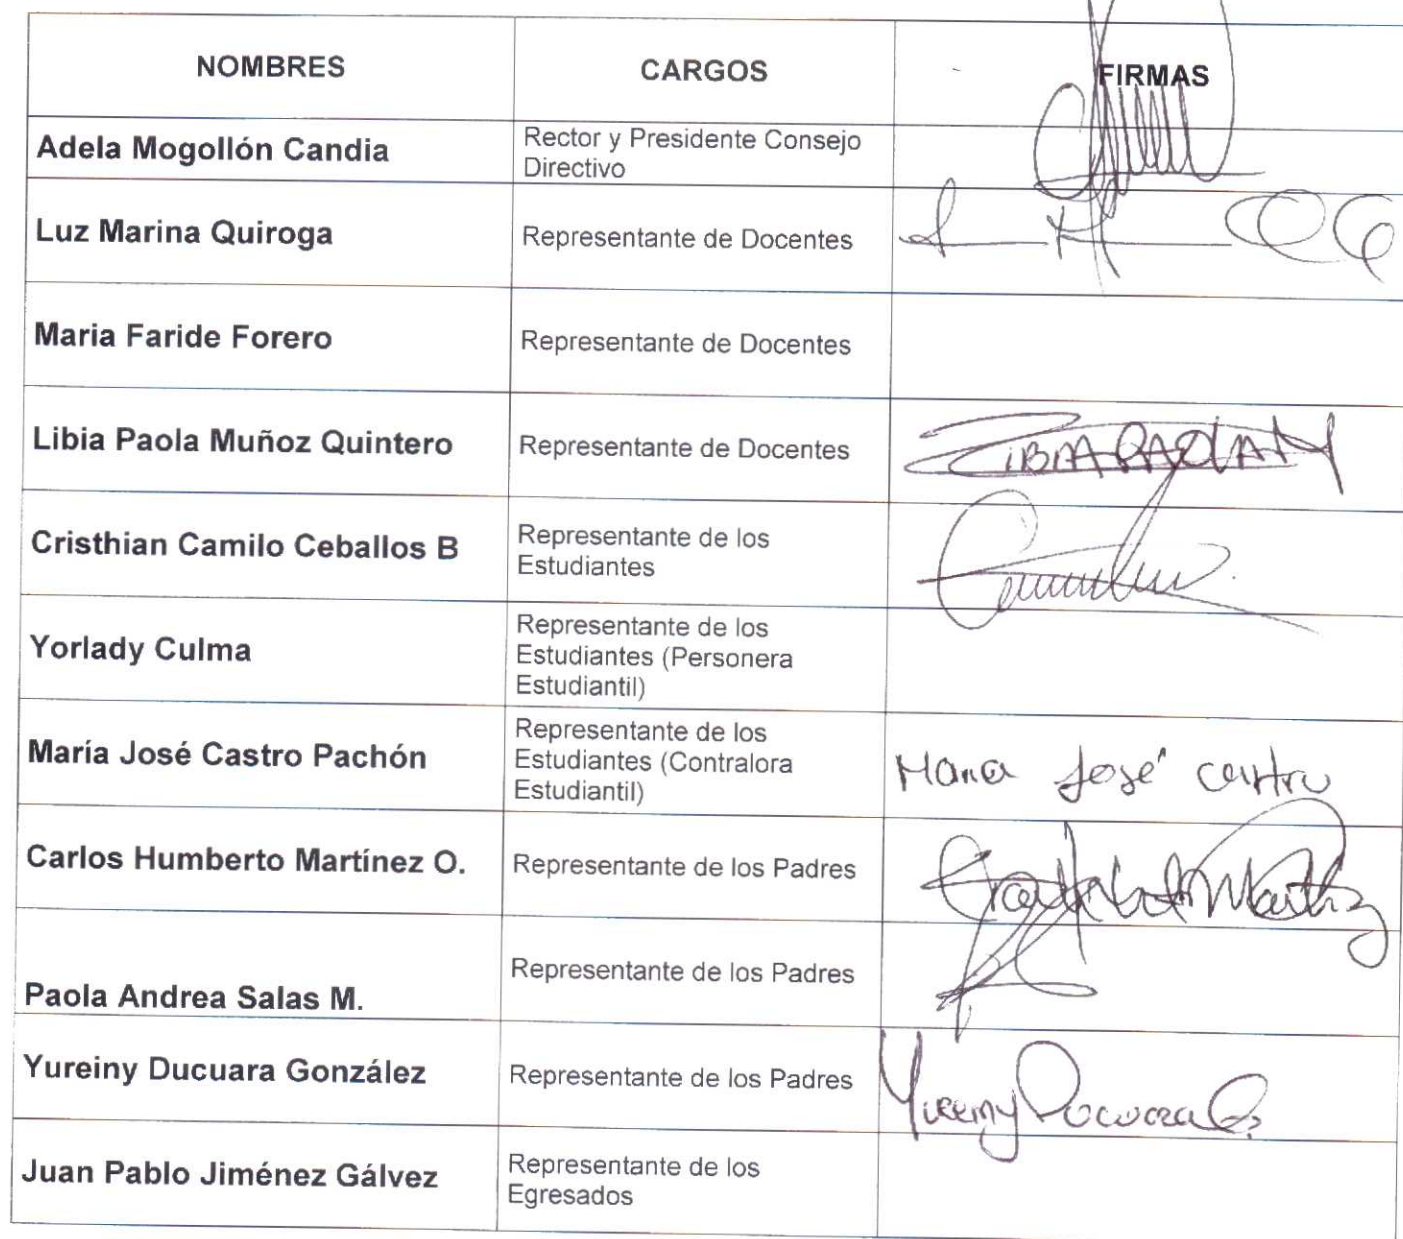 NOMBRES CARGOS FIRMAS
Adela Mogollón Candia Rector y Presidente Consejo
Directivo
Luz Marina Quiroga Representante de Docentes
Maria Faride Forero Representante de Docentes
Libia Paola Muñoz Quintero Representante de Docentes LIBIA PAOLA M
Cristhian Camilo Ceballos B Representante de los
Estudiantes
Yorlady Culma Representante de los
Estudiantes (Personera
Estudiantil)
María José Castro Pachón Representante de los
Estudiantes (Contralora
Estudiantil)
Maria José castro
Carlos Humberto Martínez O. Representante de los Padres
Paola Andrea Salas M. Representante de los Padres
Yureiny Ducuara González Representante de los Padres Yureiny Ducuara G
Juan Pablo Jiménez Gálvez Representante de los
Egresados